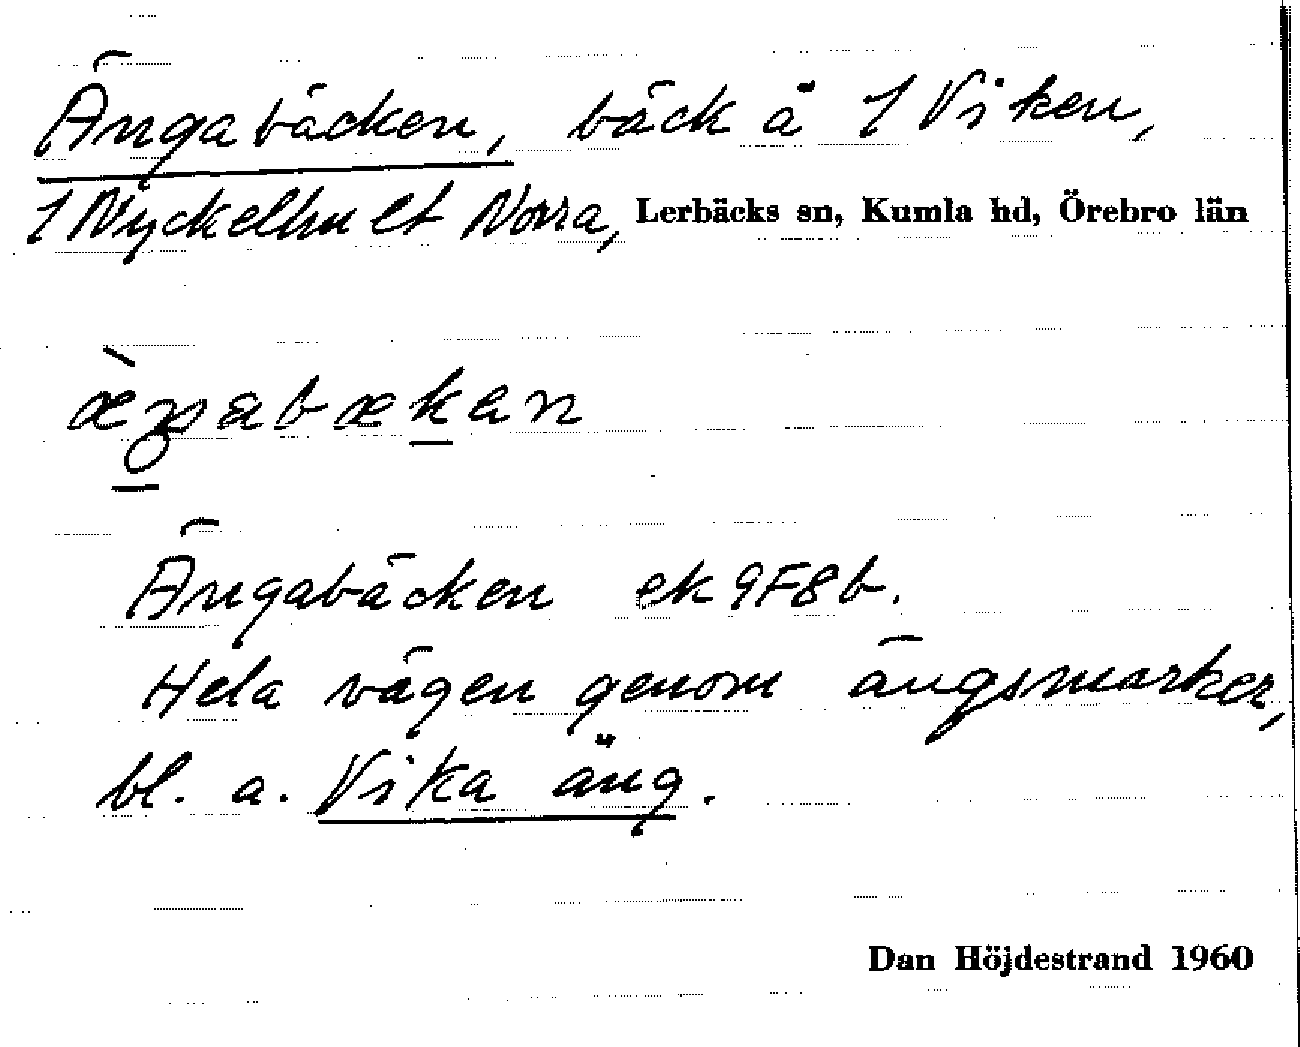 Ängabäcken, bäck å 1 Viken,
1 Nyckelhult Norra, Lerbäcks sn, Kumla hd, Örebro län
æ̀ŋabækan
Ängabäcken ek 9F8b.
Hela vägen genom ängsmarker,
bl. a. Vika äng.
Dan Höjdestrand 1960